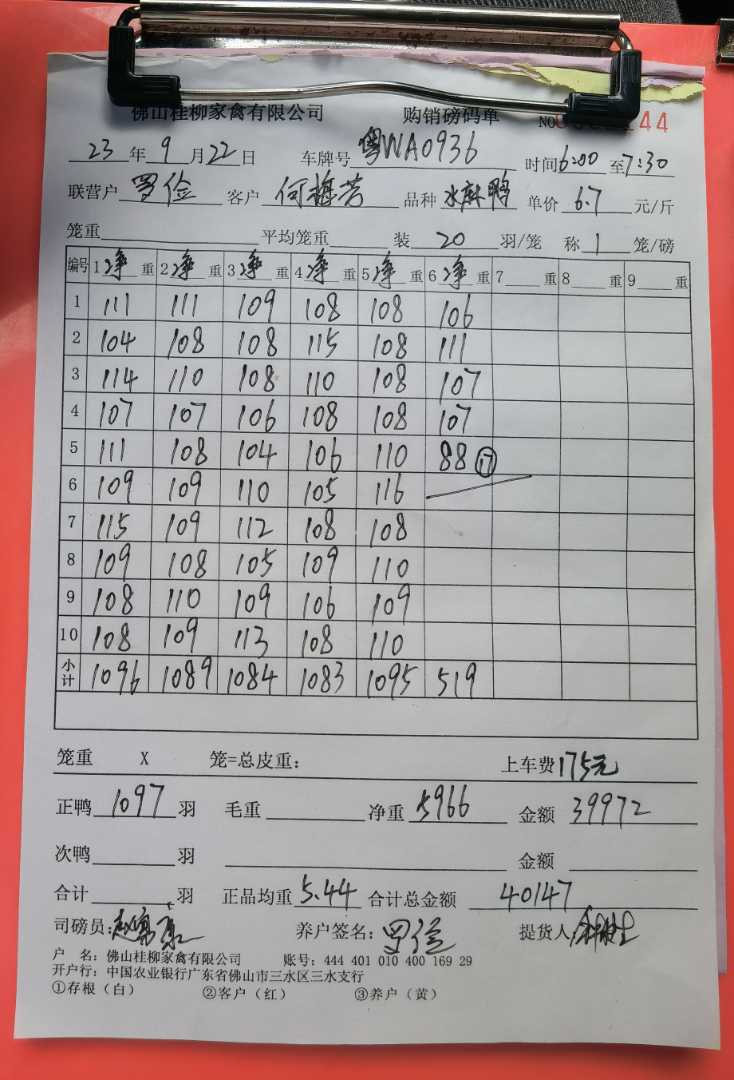 佛山桂柳家禽有限公司 购销磅码单 NO 44
23年9月22日 车牌号 粤WA0936 时间6:00至7:30
联营户 罗俭 客户 何梅芳 品种 水麻鸭 单价 6.7 元/斤
笼重 平均笼重 装 20 羽/笼 称 1 笼/磅
编号 1净重 2净重 3净重 4净重 5净重 6净重 7 重 8 重 9 重
1 111 111 109 108 108 106
2 104 108 108 115 108 111
3 114 110 108 110 108 107
4 107 107 106 108 108 107
5 111 108 104 106 110 88 ⑰
6 109 109 110 105 116
7 115 109 112 108 108
8 109 108 105 109 110
9 108 110 109 106 109
10 108 109 113 108 110
小计 1096 1089 1084 1083 1095 519
笼重 X 笼=总皮重: 上车费175元
正鸭 1097 羽 毛重 净重 5966 金额 39972
次鸭 羽 金额
合计 羽 正品均重 5.44 合计总金额 40147
司磅员: 养户签名: 罗俭 提货人
户 名: 佛山桂柳家禽有限公司 账号: 444 401 010 400 169 29
开户行: 中国农业银行广东省佛山市三水区三水支行
①存根(白) ②客户(红) ③养户(黄)